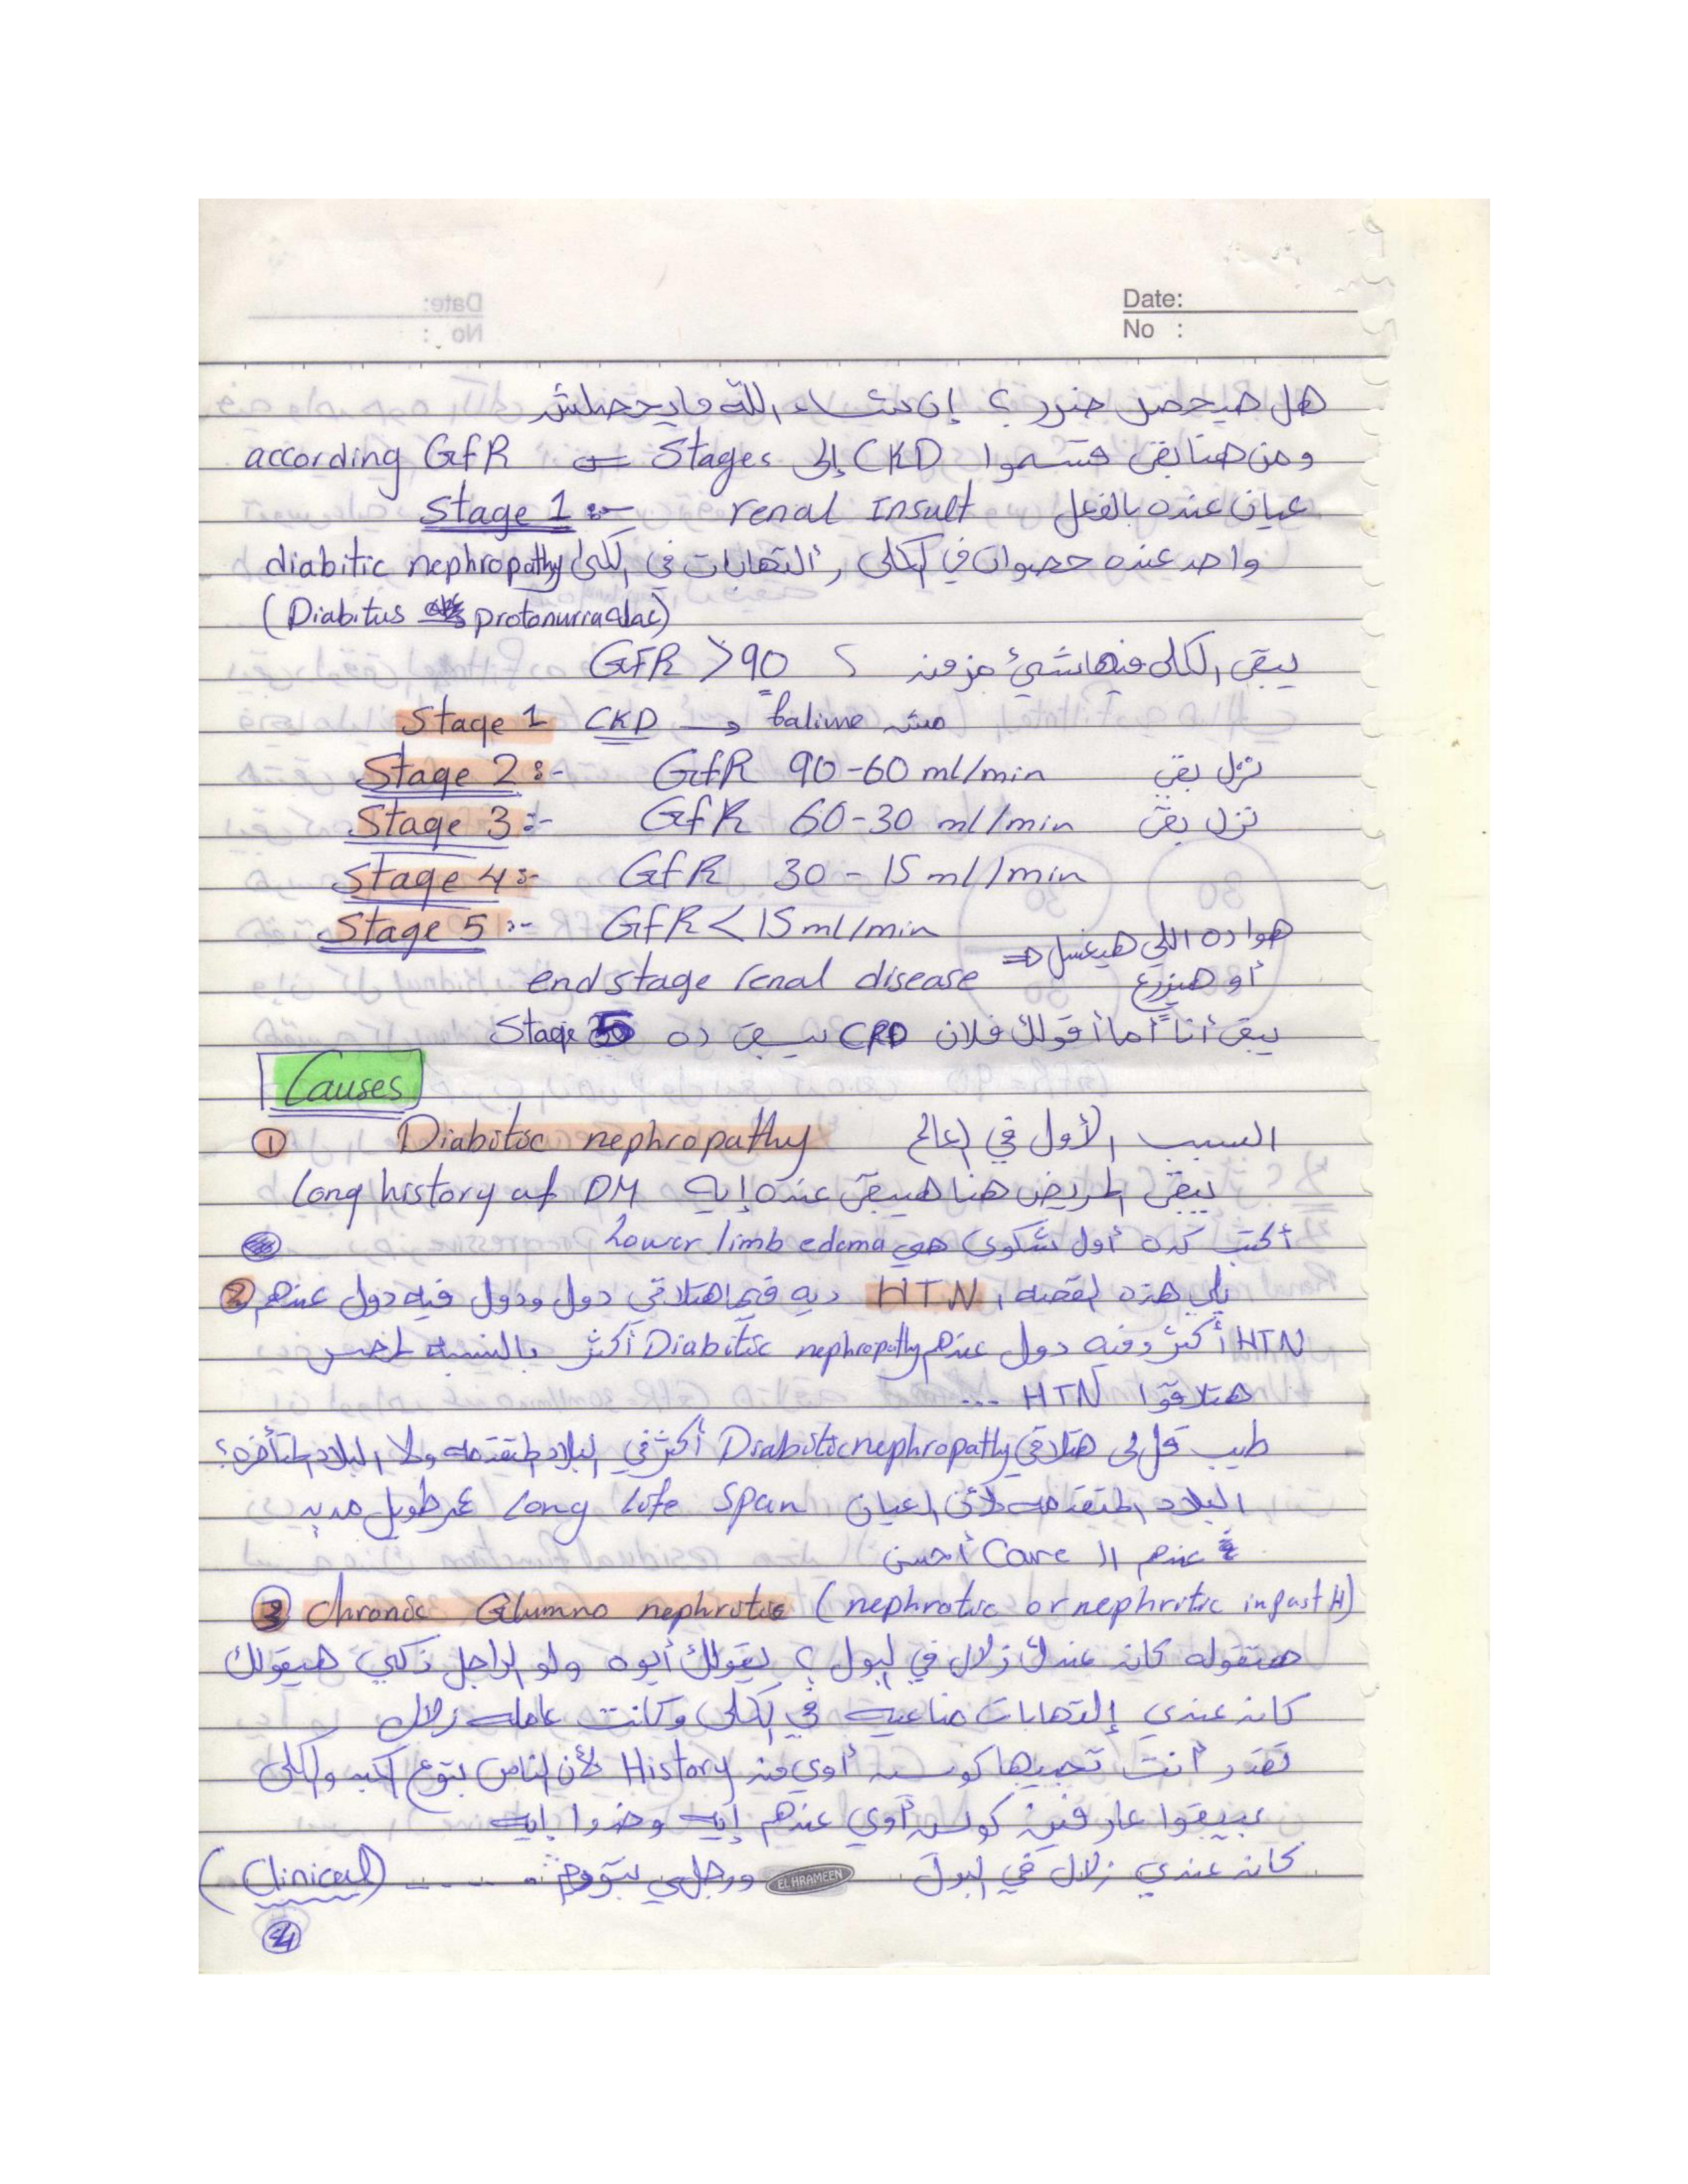 Date:
No :
هل هيحصل ضرر ؟ إن شاء الله مايحصلش
ومن هنا بقى قسموا CKD إلى Stages according GfR
عيان عنده بالفعل renal Insult Stage 1 :-
واحد عنده حصوات في الكلى , ألتهابات في الكلى diabitic nephropathy
(Diabitus
يبقى الكلى فيها شئ من GFR >90
Stage 1 CKD → مش
Stage 2 :- GfR 90-60 ml/min نزل بقى
Stage 3 :- GfR 60-30 ml/min نزل بقى
Stage 4 :- GfR 30 - 15 ml/min
Stage 5 :- GfR < 15 ml/min
هوا ده اللي هيغسل ⇒
end stage renal disease أو هيزرع
يبقى أنا أما أقولك فلان CRD يبقى ده Stage 5
Causes
① Diabitic nephropathy السبب الأول في العالم
يبقى المريض هنا هيبقى عنده إيه Long history of DM
أكتب كده أول شكوى هي Lower limb edema
② يلي هذه القصه , HTN ديه فيها هتلاقي دول ودول فيه دول عندهم
HTN أكثر وفيه دول عندهم Diabitic nephropathy أكثر بالنسبه لمصر
هتلاقوا HTN ...
طيب قل لى هتلاقي Diabitic nephropathy أكثر في البلاد المتقدمه ولا البلاد المتأخره ؟
البلاد المتقدمه لأن العيان Long life Span عمر طويل مديد
عندهم الـ Care أحسن
③ Chronic Glumno nephritis (nephrotic or nephritic in past H)
هتقوله كان عندك زلال في البول ؟ يقولك أيوه ولو الراجل ذكي هيقولك
كان عندي إلتهابات مناعيه في الكلى وكانت عامله زلال
تقدر أنت تجيبها كويسه أوي من History لأن الناس بتوع الكبد والكلى
بيبقوا عارفين كويس أوي عندهم إيه وخدوا إيه
كان عندي زلال في البول ورجلي بتورم ..... (Clinical)
EL HRAMEEN